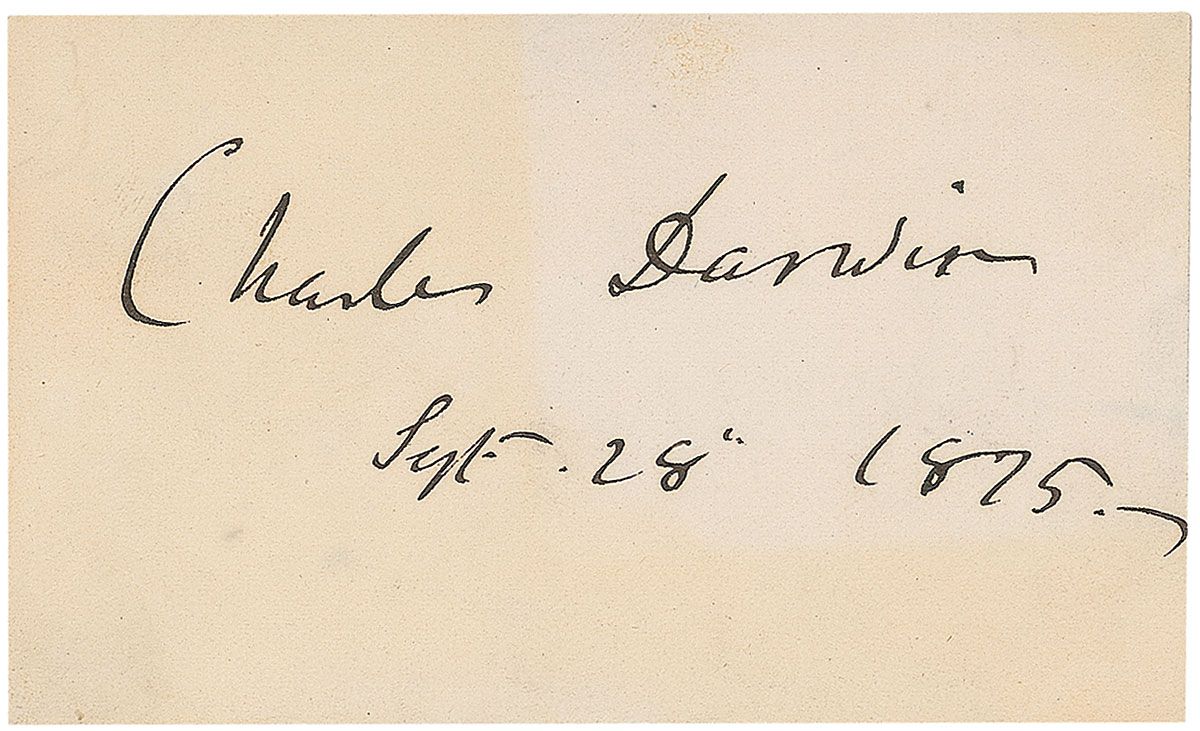 Charles Darwin
Sept. 28" 1875.—